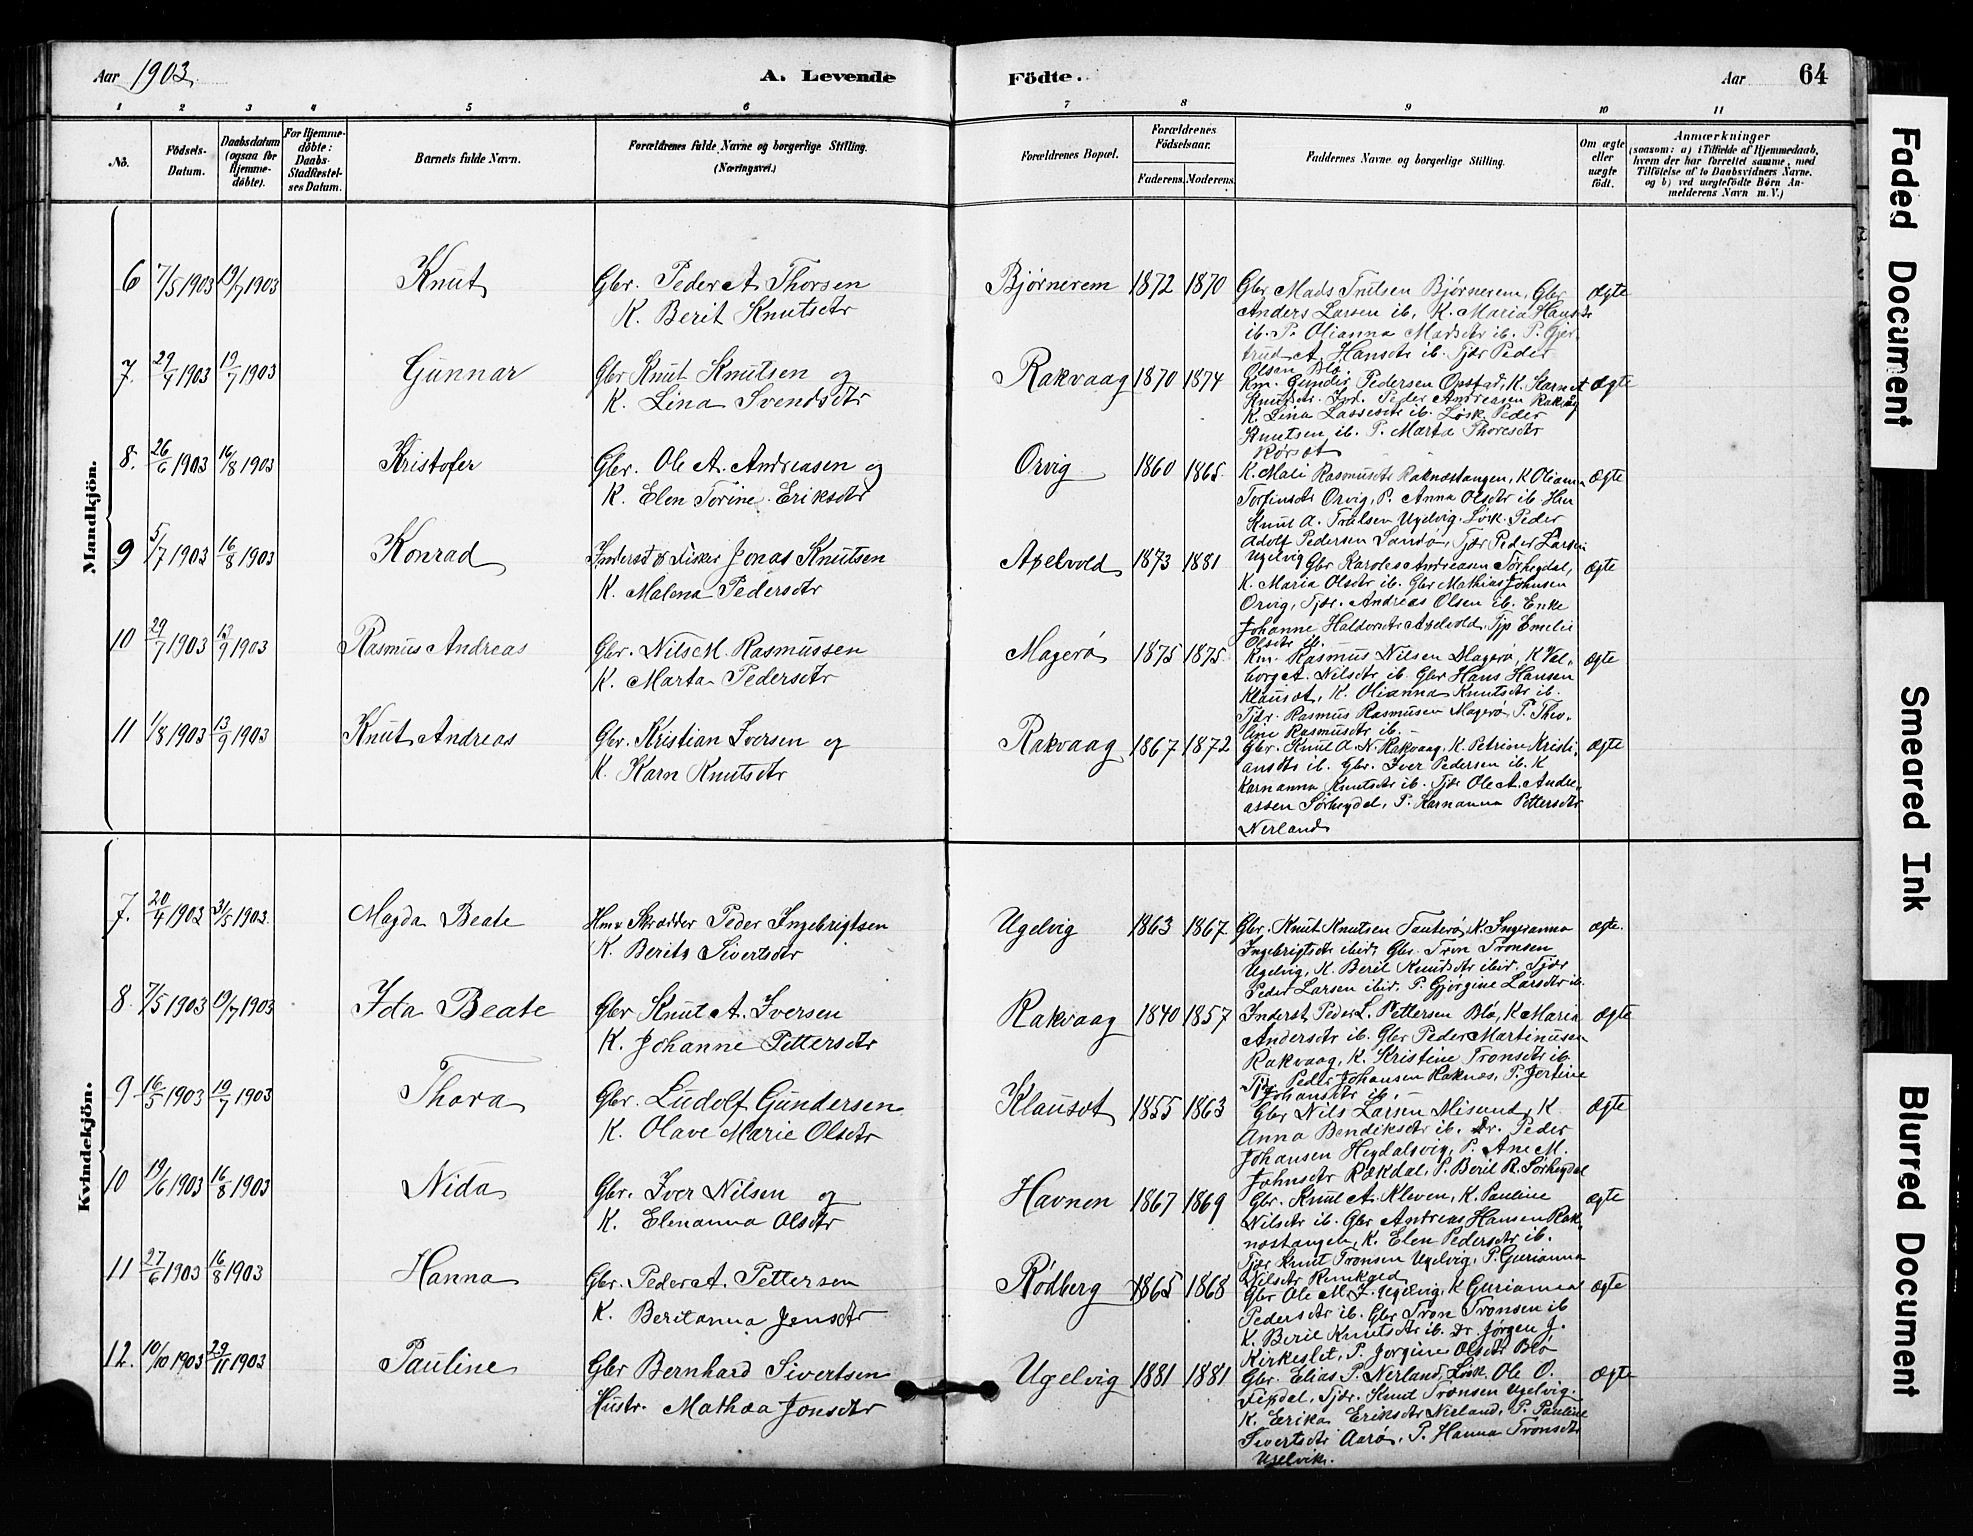 Aar 1903. A. Levende Fødte. Aar 64
1 2 3 4 5 6 7 8 9 10 11
No. Fødsels-Datum. Daabsdatum (ogsaa for Hjemme-døbte). For Hjemme-døbte: Daabs-Stadfæstel-ses Datum. Barnets fulde Navn. Forældrenes fulde Navne og borgerlige Stilling. (Næringsvei.) Forældrenes Bopæl. Forældrenes Fødselsaar. Faderens. Moderens. Faddernes Navne og borgerlige Stilling. Om ægte eller uægte født. Anmærkninger (saasom: a) i Tilfælde af Hjemmedaab, hvem der har forrettet samme, med Tilføielse af to Daabsvidners Navne. og b) ved uægtefødte Børn An-melderens Navn m. V.)
Mandkjøn.
6 7/5 1903 19/7 1903 Knut Gbr. Peder A Thorsen Bjørnerem 1872 1870 Gbr Mads Trulsen Bjørnerem, Gbr Ægte
K. Berit Knutsdtr Anders Larsen ib, K. Maria Hansdr
ib. P. Olianna Madsdtr ib. P. Gjer-
trud A. Hansdtr ib. Tjdr Peder
Olsen Blø.
7. 29/4 1903 19/7 1903 Gunnar Gbr Knut Knutsen og Rakvaag 1870 1874 Km. Gunder Pedersen Opstad, K. Karnet Ægte
K. Lina Svendsdtr Knutsdtr. Inr. Peder Andreasen Rakvåg
K. Lina Lassesdtr ib. Løsk. Peder
Knutsen ib. P. Marta Thoresdtr
Rørset
8. 26/6 1903 16/8 1903 Kristofer Gbr. Ole A. Andreasen og Orvig 1860 1865. K. Mali Rasmusdtr Raknestangen, K Olianna Ægte
K. Elen Torine Eriksdtr Torfinsdtr Orvig, P. Anna Olsdtr ib.
Knut A. Trulsen Ugelvig. Løsk. Peder
Adolf Pedersen Sandø, Tjdr Peder Larsen
9 5/7 1903 16/8 1903 Konrad Inderst og Fisker Jonas Knutsen Axelvold 1873 1881 Ugelvig Gbr Karoles Andreasen Sørheydal, Ægte
K. Malena Pedersdtr K. Maria Olsdtr ib. Gbr Mathias Johnsen
Orvig, Tjdr. Andreas Olsen ib. Enke
Johanne Haldorsdtr Axelvold, Tjp Emelie
Olsdtr ib.
10 29/7 1903 13/9 1903 Rasmus Andreas Gbr. Nils M. Rasmussen Magerø 1875 1875 Km. Rasmus Nilsen Magerø, K Val- ægte
K. Marta Pedersdtr borg A. Nilsdtr ib. Gbr Hans Hansen
Klauset, K. Olianna Knutsdtr ib.
Tjdr. Rasmus Rasmusen Magerø P. Theo-
line Rasmusdtr ib.
11 1/8 1903 13/9 1903 Knut Andreas Gbr. Kristian Iversen og Rakvaag 1867 1872 Gbr. Knut A. N. Rakvaag, K. Petrine Kristi- ægte
K. Karn Knutsdtr ansdtr ib. Gbr. Iver Pedersen ib. K
Karnanna Knutsdtr ib. Tjdr Ole A. Andre-
assen Sørheydal, P. Karnanna Pettersdtr
Nerland
Kvindekjøn.
7. 20/4 1903 31/5 1903. Magda Beate Hmd Skrædder Peder Ingebrigtsen Ugelvig 1863 1867 Gbr. Knut Knutsen Tauterø, K. Ingeranna ægte.
K. Berits Sivertsdtr Ingebrigtsdtr ibid, Gbr. Tron Tronsen
Ugelvig, K. Beril Knudsdtr ibid. Tjdr
Peder Larsen ibid, P. Gjørgine Larsdtr ib.
8. 7/5 1903 19/7 1903 Ida Beate Gbr Knut A. Iversen Rakvaag 1840 1857 Inderst Peder L. Pettersen Blø, K Maria Ægte
K. Johanne Pettersdtr Andersdtr ib. Gbr Peder Martinusen
Rakvaag, K. Kristine Tronsdtr ib.
Tjdr Peder Johansen Raknes, P. Jertine
Johansdtr ib.
9 16/5 1903 19/7 1903 Thora Gbr. Ludolf Gundersen Klauset 1855 1863 Gbr Nils Larsen Misund, K. Ægte
K. Olave Marie Olsdtr Anna Bendiksdtr ib. Dr. Peder
Johansen Heydalsvig, P. Ane M.
Johnsdtr Rakdal, P. Beril R. Sørheydal
10 19/6 1903 16/8 1903 Nida Gbr. Iver Nilsen og Havnen 1867 1869 Gbr. Knut A. Kleven, K. Pauline ægte
K. Elenanna Olsdtr Nilsdtr ib. Gbr Andreas Hansen Rak-
nestangen, K. Elen Pedersdtr ib.
Tjdr Knut Tronsen Ugelvig, P. Gurianna
Nilsdtr
11 27/6 1903 16/8 1903 Hanna Gbr. Peder A. Pettersen Rødberg 1865 1868 Gbr Ole M. J. Ugelvig, K Gurianna ægte
K. Beritanna Jensdtr Pedersdtr ib. Gbr Tron Tronsen ib
K. Beril Knutsdtr ib. Dr. Jørgen J.
Kirkeslet, P. Jorgine Olsdtr Blø
12. 10/10 1903 29/11 1903 Pauline Gbr Bernhard Sivertsen Ugelvig 1881 1881 Gbr. Elias P. Nerland, Løsk. Ole O. Ægte
Hustr. Mathea Jonsdtr Fixdal, Tjdr. Knut Tronsen Ugelvig.
K. Erika Eriksdtr Nerland, P. Pauline
Sivertsdtr Aarø, P. Hanna Tronsdtr
Ugelvik.
Faded Document
Smeared Ink
Blurred Document